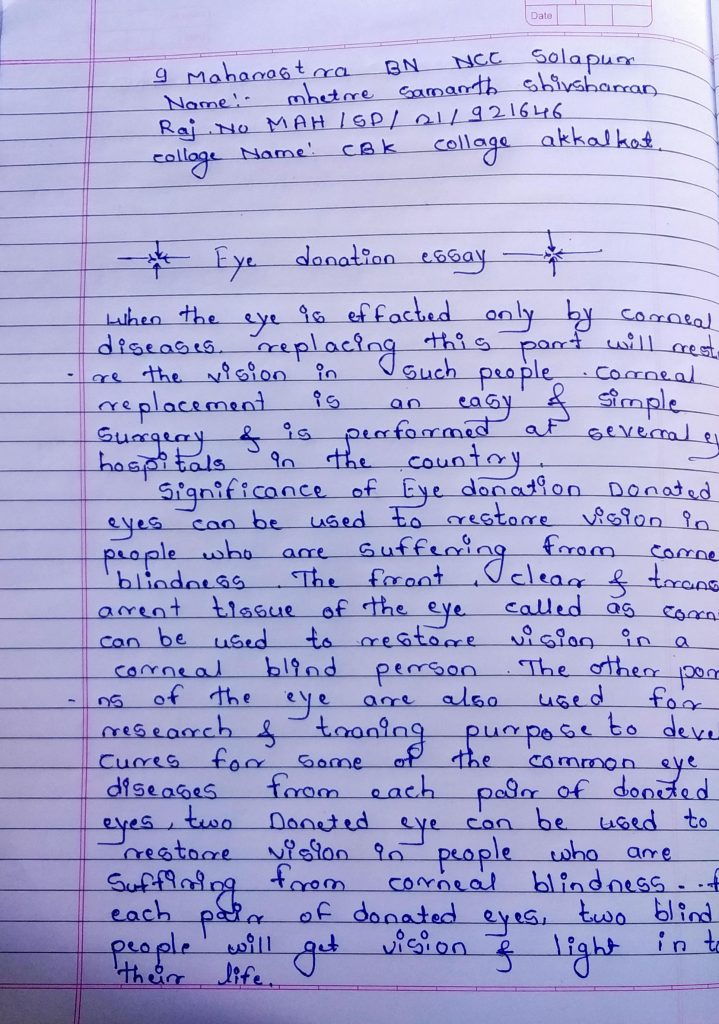 Date
9 Maharastra BN NCC Solapur
Name:- mhetre Samarth Shivsharan
Raj. No MAH / SD / 21 / 921646
collage Name: CBK collage akkalkot.
Eye donation essay
When the eye is effacted only by corneal
diseases. replacing this part will rest
- re the vision in such people . corneal
replacement is an easy & simple
Surgery & is performed at several ey
hospitals in the country.
Significance of Eye donation Donated
eyes can be used to restore vision in
people who are suffering from corne
blindness . The front , clear & trans
arrent tissue of the eye called as corn
can be used to restore vision in a
corneal blind person . The other por
- ns of the eye are also used for
research & traning purpose to deve
Cures for some of the common eye
diseases from each pair of doneted
eyes, two Doneted eye can be used to
restore vision in people who are
Suffiring from corneal blindness . . f
each pair of donated eyes, two blind
people will get vision & light in to
their life.